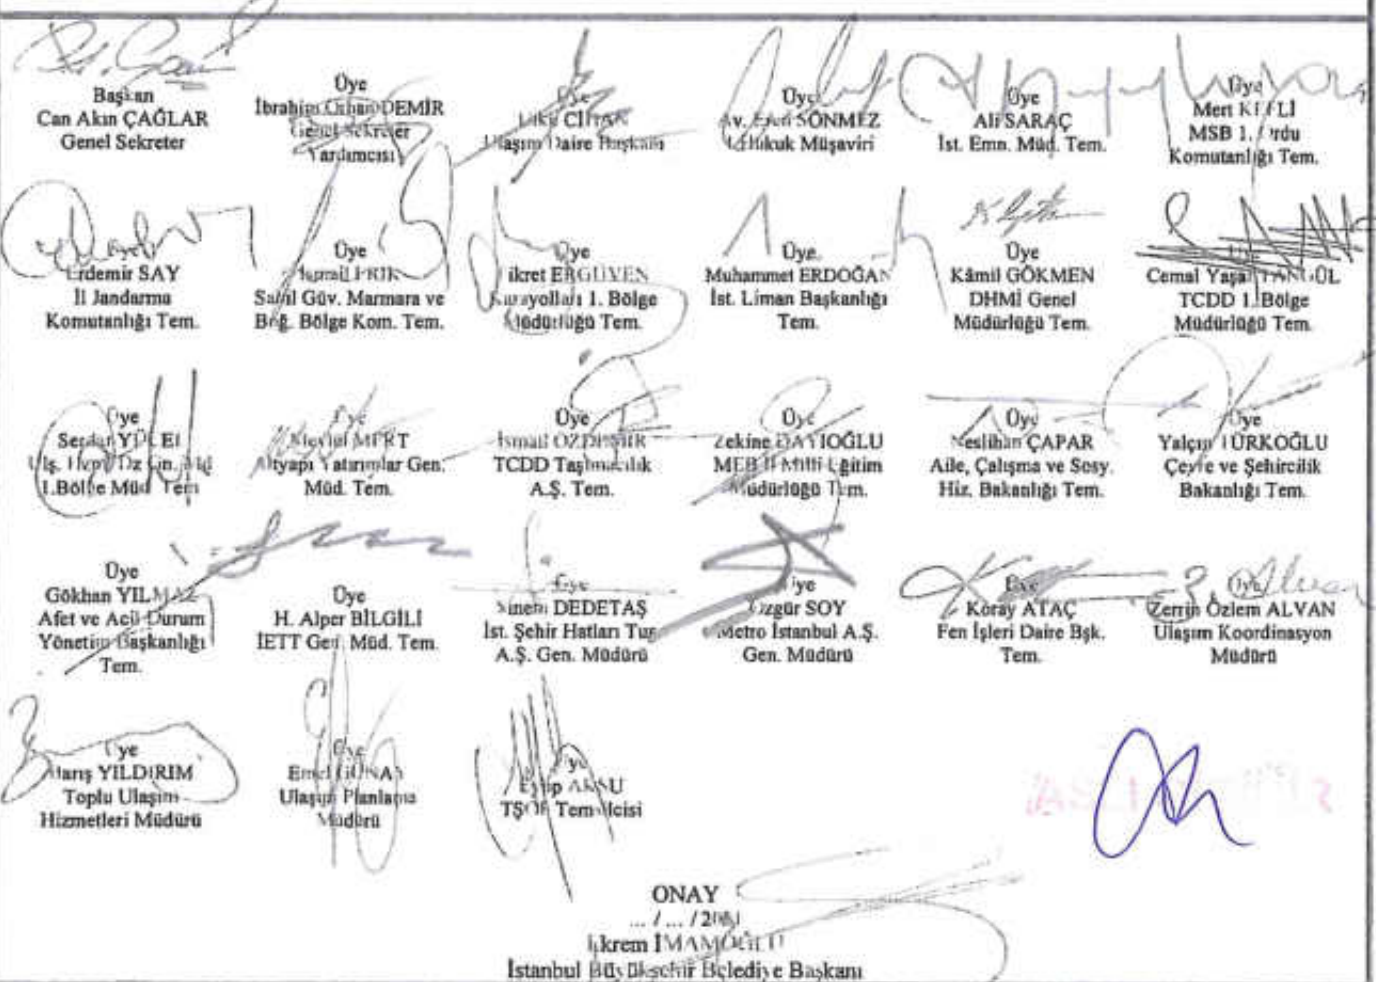 Başkan
Can Akın ÇAĞLAR
Genel Sekreter
Üye
İbrahim Orhan DEMİR
Genel Sekreter
Yardımcısı
Üye
Utku CİHAN
Ulaşım Daire Başkanı
Üye
Av. Eren SÖNMEZ
I. Hukuk Müşaviri
Üye
Ali SARAÇ
İst. Emn. Müd. Tem.
Üye
Mert
MSB 1. Ordu
Komutanlığı Tem.
Erdemir SAY
İl Jandarma
Komutanlığı Tem.
Üye
İsmail
Sahil Güv. Marmara ve
Boğ. Bölge Kom. Tem.
Üye
Fikret ERGÜVEN
Karayolları 1. Bölge
Müdürlüğü Tem.
Üye
Muhammet ERDOĞAN
İst. Liman Başkanlığı
Tem.
Üye
Kâmil GÖKMEN
DHMİ Genel
Müdürlüğü Tem.
Cemal Yaşar
TCDD 1. Bölge
Müdürlüğü Tem.
Üye
Serdar
1.Bölge Müd. Tem
Üye
MERT
Altyapı Yatırımlar Gen.
Müd. Tem.
Üye
İsmail ÖZDEMİR
TCDD Taşımacılık
A.Ş. Tem.
Üye
Zekine DAYIOĞLU
MEB İl Milli Eğitim
Müdürlüğü Tem.
Üye
Neslihan ÇAPAR
Aile, Çalışma ve Sosy.
Hiz. Bakanlığı Tem.
Üye
Yalçın TÜRKOĞLU
Çevre ve Şehircilik
Bakanlığı Tem.
Üye
Gökhan YILMAZ
Afet ve Acil Durum
Yönetim Başkanlığı
Tem.
Üye
H. Alper BİLGİLİ
İETT Gen. Müd. Tem.
Üye
Sinem DEDETAŞ
İst. Şehir Hatları Tur.
A.Ş. Gen. Müdürü
Üye
Özgür SOY
Metro İstanbul A.Ş.
Gen. Müdürü
Üye
Koray ATAÇ
Fen İşleri Daire Bşk.
Tem.
Üye
Zerrin Özlem ALVAN
Ulaşım Koordinasyon
Müdürü
Üye
Barış YILDIRIM
Toplu Ulaşım
Hizmetleri Müdürü
Üye
Emel GÜNAY
Ulaşım Planlama
Müdürü
Üye
Eyüp AKSU
TŞOF Temsilcisi
ONAY
... / ... /
Ekrem İMAMOĞLU
İstanbul Büyükşehir Belediye Başkanı